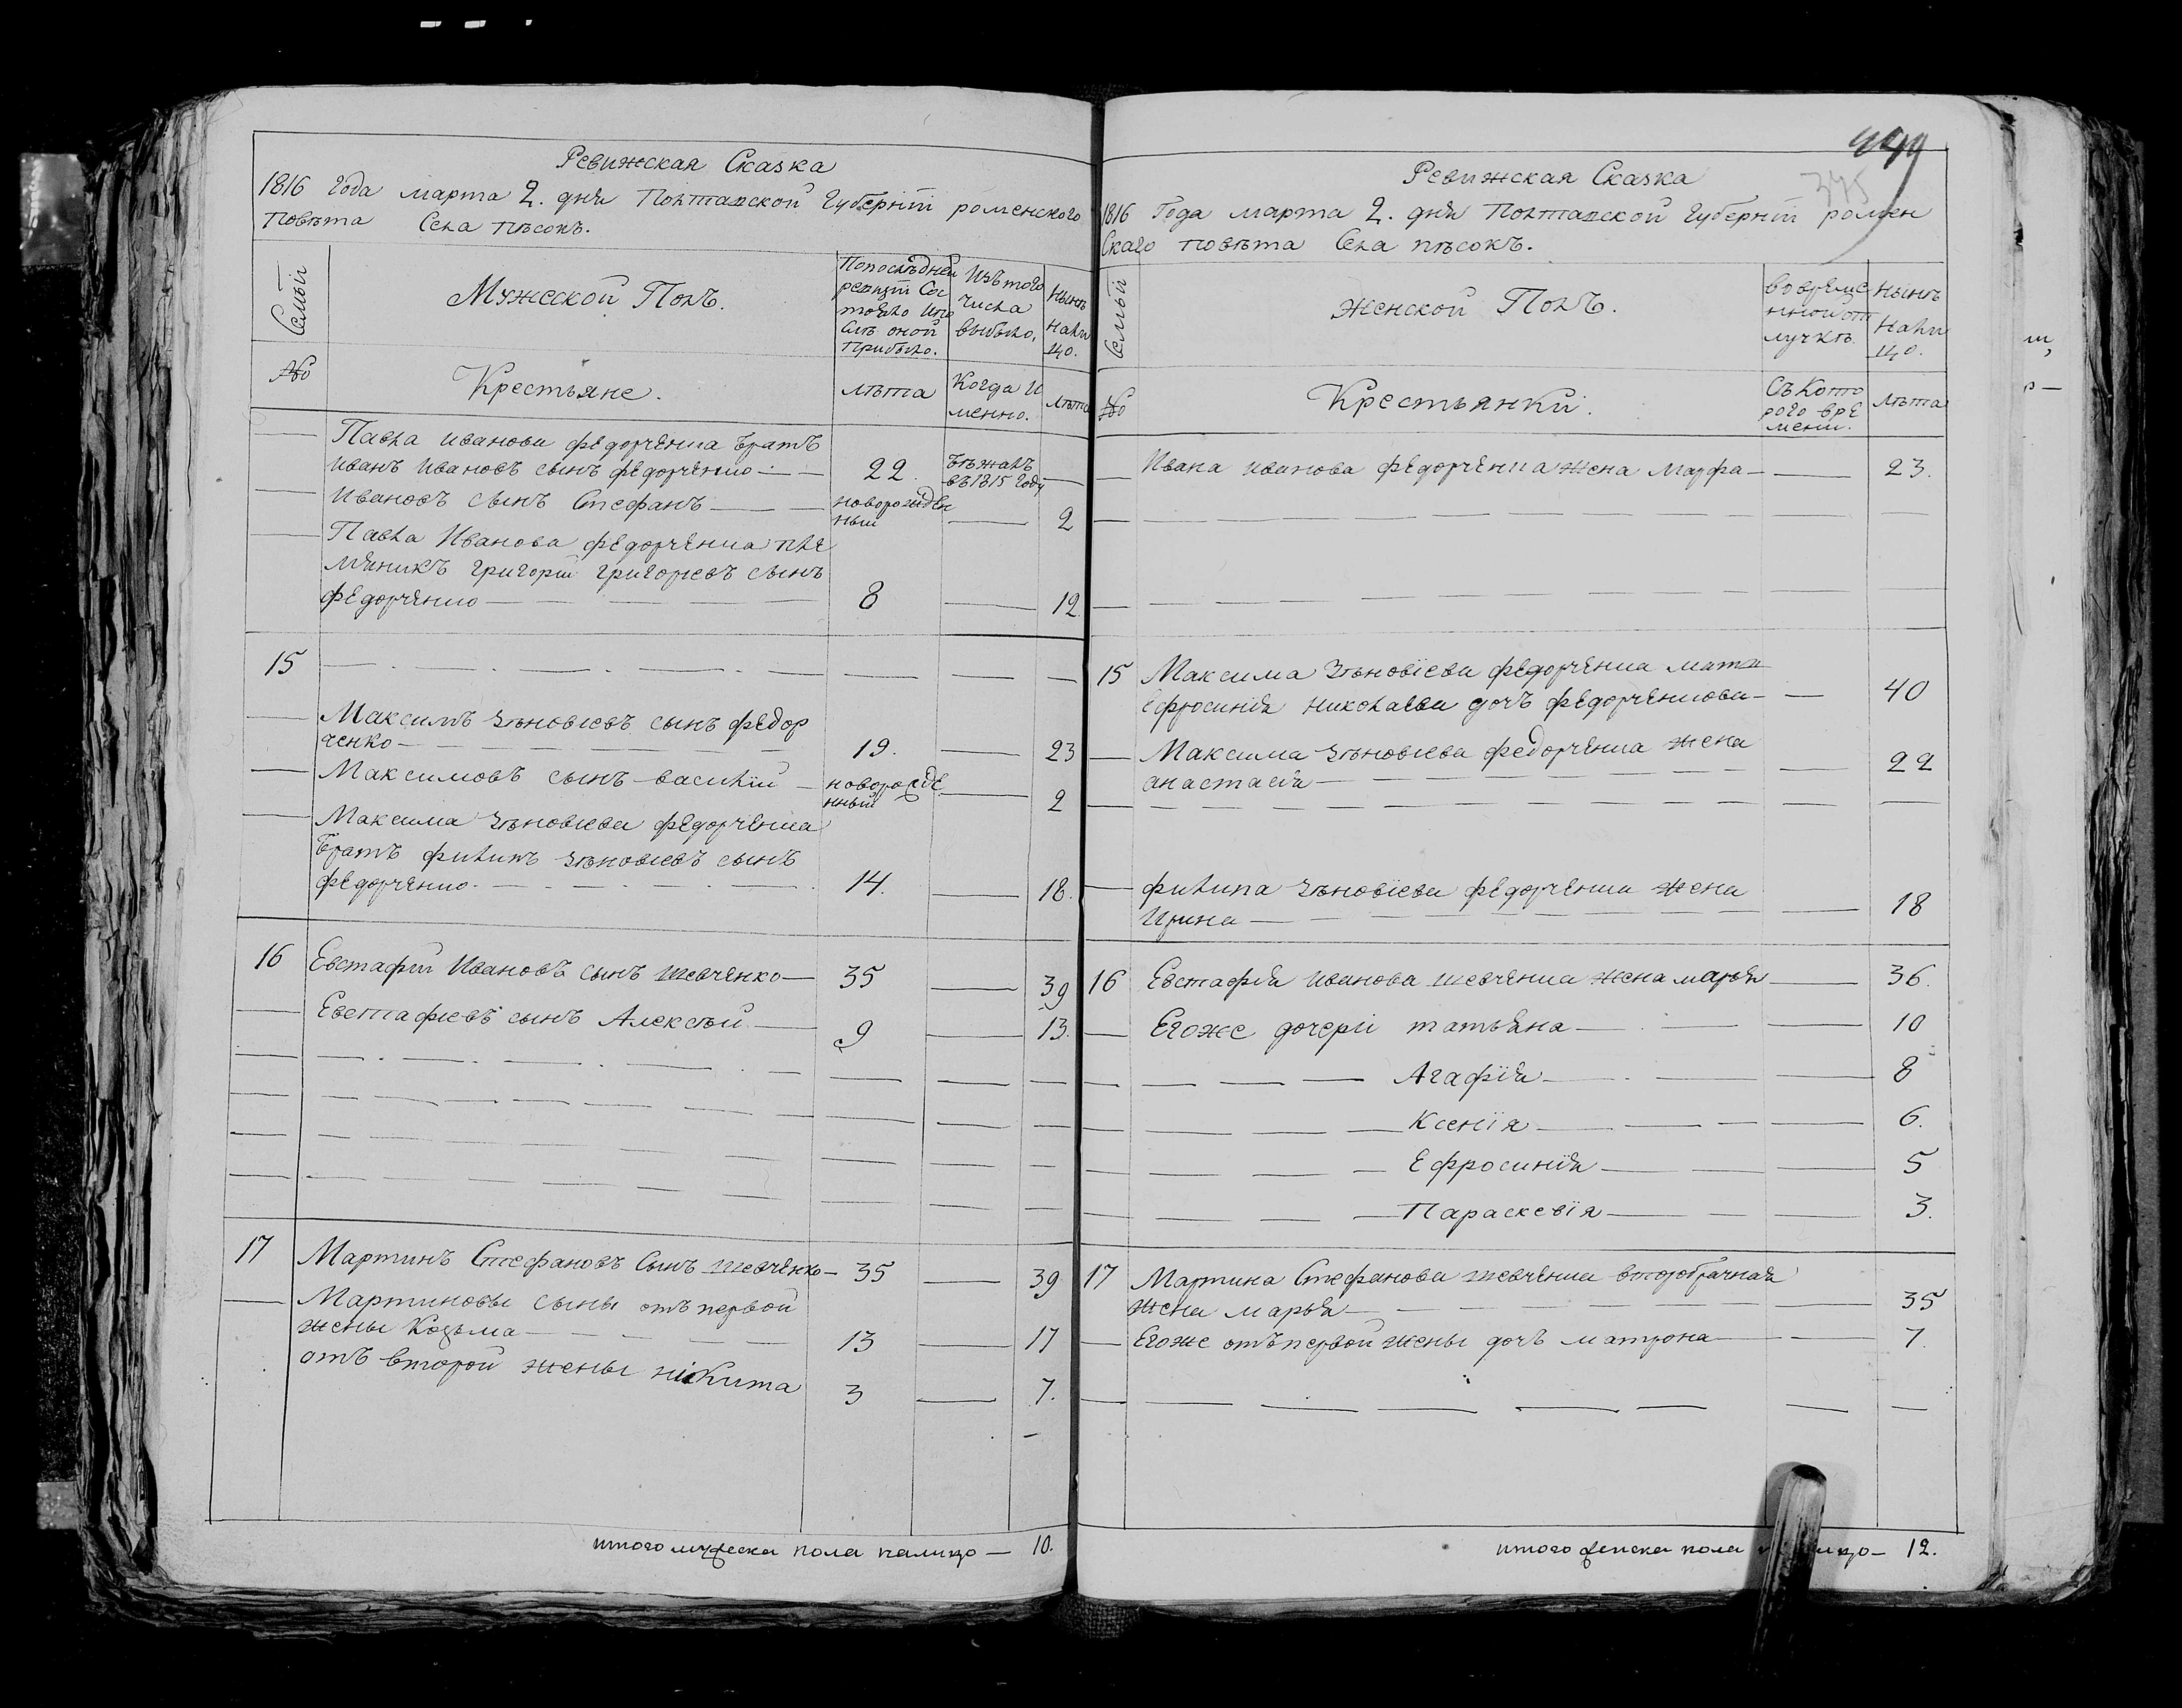 Ревижская Сказка
1816 Года марта 2. дня Полтавской Губернїи роменского
Повѣта Села пѣсокъ.
Семьи
Мужеской Полъ.
По последней
ревизіи Сос
тояло ипо
слѣ оной
прибыло.
Изъ того
числа
выбыло.
Нынѣ
Нали
цо.
№
Крестьяне.
лѣта
Когда И
менно.
лѣта
Павла иванова федорченка братъ
иванъ Ивановъ сынъ федорченко
22.
бѣжалъ
въ 1815 году
Ивановъ сынъ Стефанъ
новорожден
ный
2
Павла Иванова федорченка пле
мяникъ григорій григорьевъ сынъ
федорченко
8
12
15
Максимъ зѣновіевъ сынъ федор
ченко
19.
23
Максимовъ сынъ василїй
новорожде
нный
2
Максима зѣновіева федорченка
братъ филипъ зѣновіевъ сынъ
федорченко.
14.
18.
16 Евстафій Ивановъ сынъ шевченко
35
39
Евстафіевъ сынъ Алексѣй
9
13.
17 Мартинъ Стефановъ Сынъ шевченко
35
39
Мартиновы сыны отъ первой
жены Козьма
13
17
отъ второй жены никита
3
7.
итого мужеска пола налицо 10.
449
375
Ревижская Сказка
1816 Года марта 2. дня Полтавской Губернїи ромен
Скаго повѣта Села пѣсокъ.
Семьи
Женской Полъ.
во време
нной от
лучкѣ
Нынѣ
Нали
цо.
№
Крестьянки.
Съ Кото
рого вре
мени.
лѣта
Ивана иванова федорченка жена Марфа
23.
15 Максима зѣновїева федорченка мати
Ефросинія николаева дочъ федорченкова
40
Максима зѣновіева федорченка жена
анастасія
22
филипа зѣновїева федорченка жена
Ирина
18
16 Евстафія иванова шевченка жена марья
36.
Егоже дочери татьяна
10
Агафїя
8
Ксенїя
6.
Ефросинїя
5
Параскевїя
3.
17 Мартина Стефанова шевченка второбрачная
жена марья
35
Егоже отъ первой жены дочъ матрона
7.
итого женска пола 12.